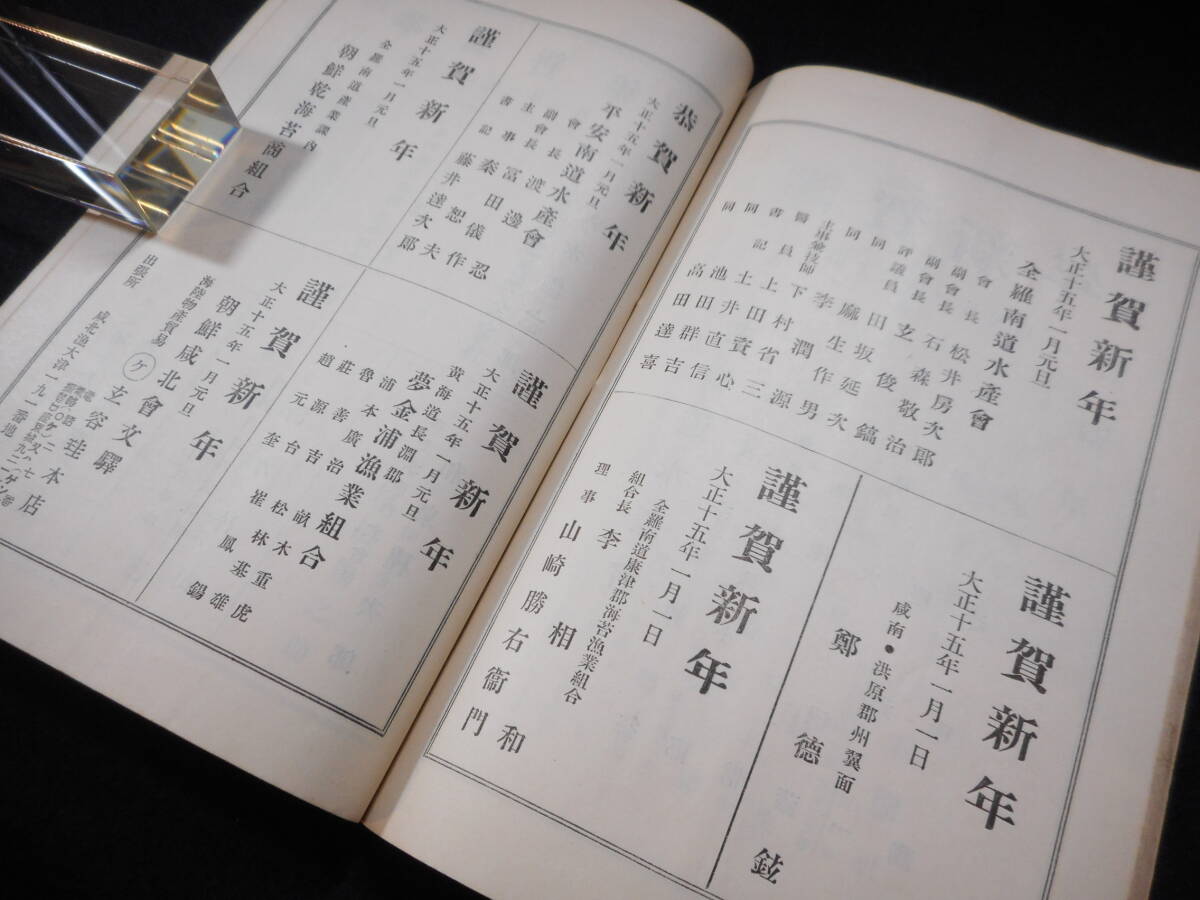 謹賀新年
大正十五年一月元旦
全羅南道水產會
會長 松井房次郎
副會長 石森敬治
副會長 玄俊鎬
評議員 田坂延次
同 麻生作男
同 李
主事兼技師 下村潤
囑員 上田省三源
書記 土井賚心
同 池田直信
同 高田群吉
同 達喜
謹賀新年
大正十五年一月一日
咸南・洪原郡州翼面
鄭德鉉
謹賀新年
大正十五年一月一日
全羅南道康津郡海苔漁業組合
組合長 李相和
理事 山崎勝右衞門
恭賀新年
大正十五年一月元旦
平安南道水產會
會長 渡邊忍
副會長 冨田儀作
主事 秦恕夫
書記 藤井達次郎
謹賀新年
大正十五年一月元旦
全羅南道產業課內
朝鮮乾海苔商組合
謹賀新年
大正十五年一月元旦
黃海道長淵郡
夢金浦漁業組合
浦本廣治
魯善吉
莊源台
趙元奎
畝木重虎
松林基雄
崔鳳錫
謹賀新年
大正十五年一月元旦
朝鮮咸北會文驛
海陸物產貿易 ケ 玄容珪本店
出張所 咸北漁大津一九一番地